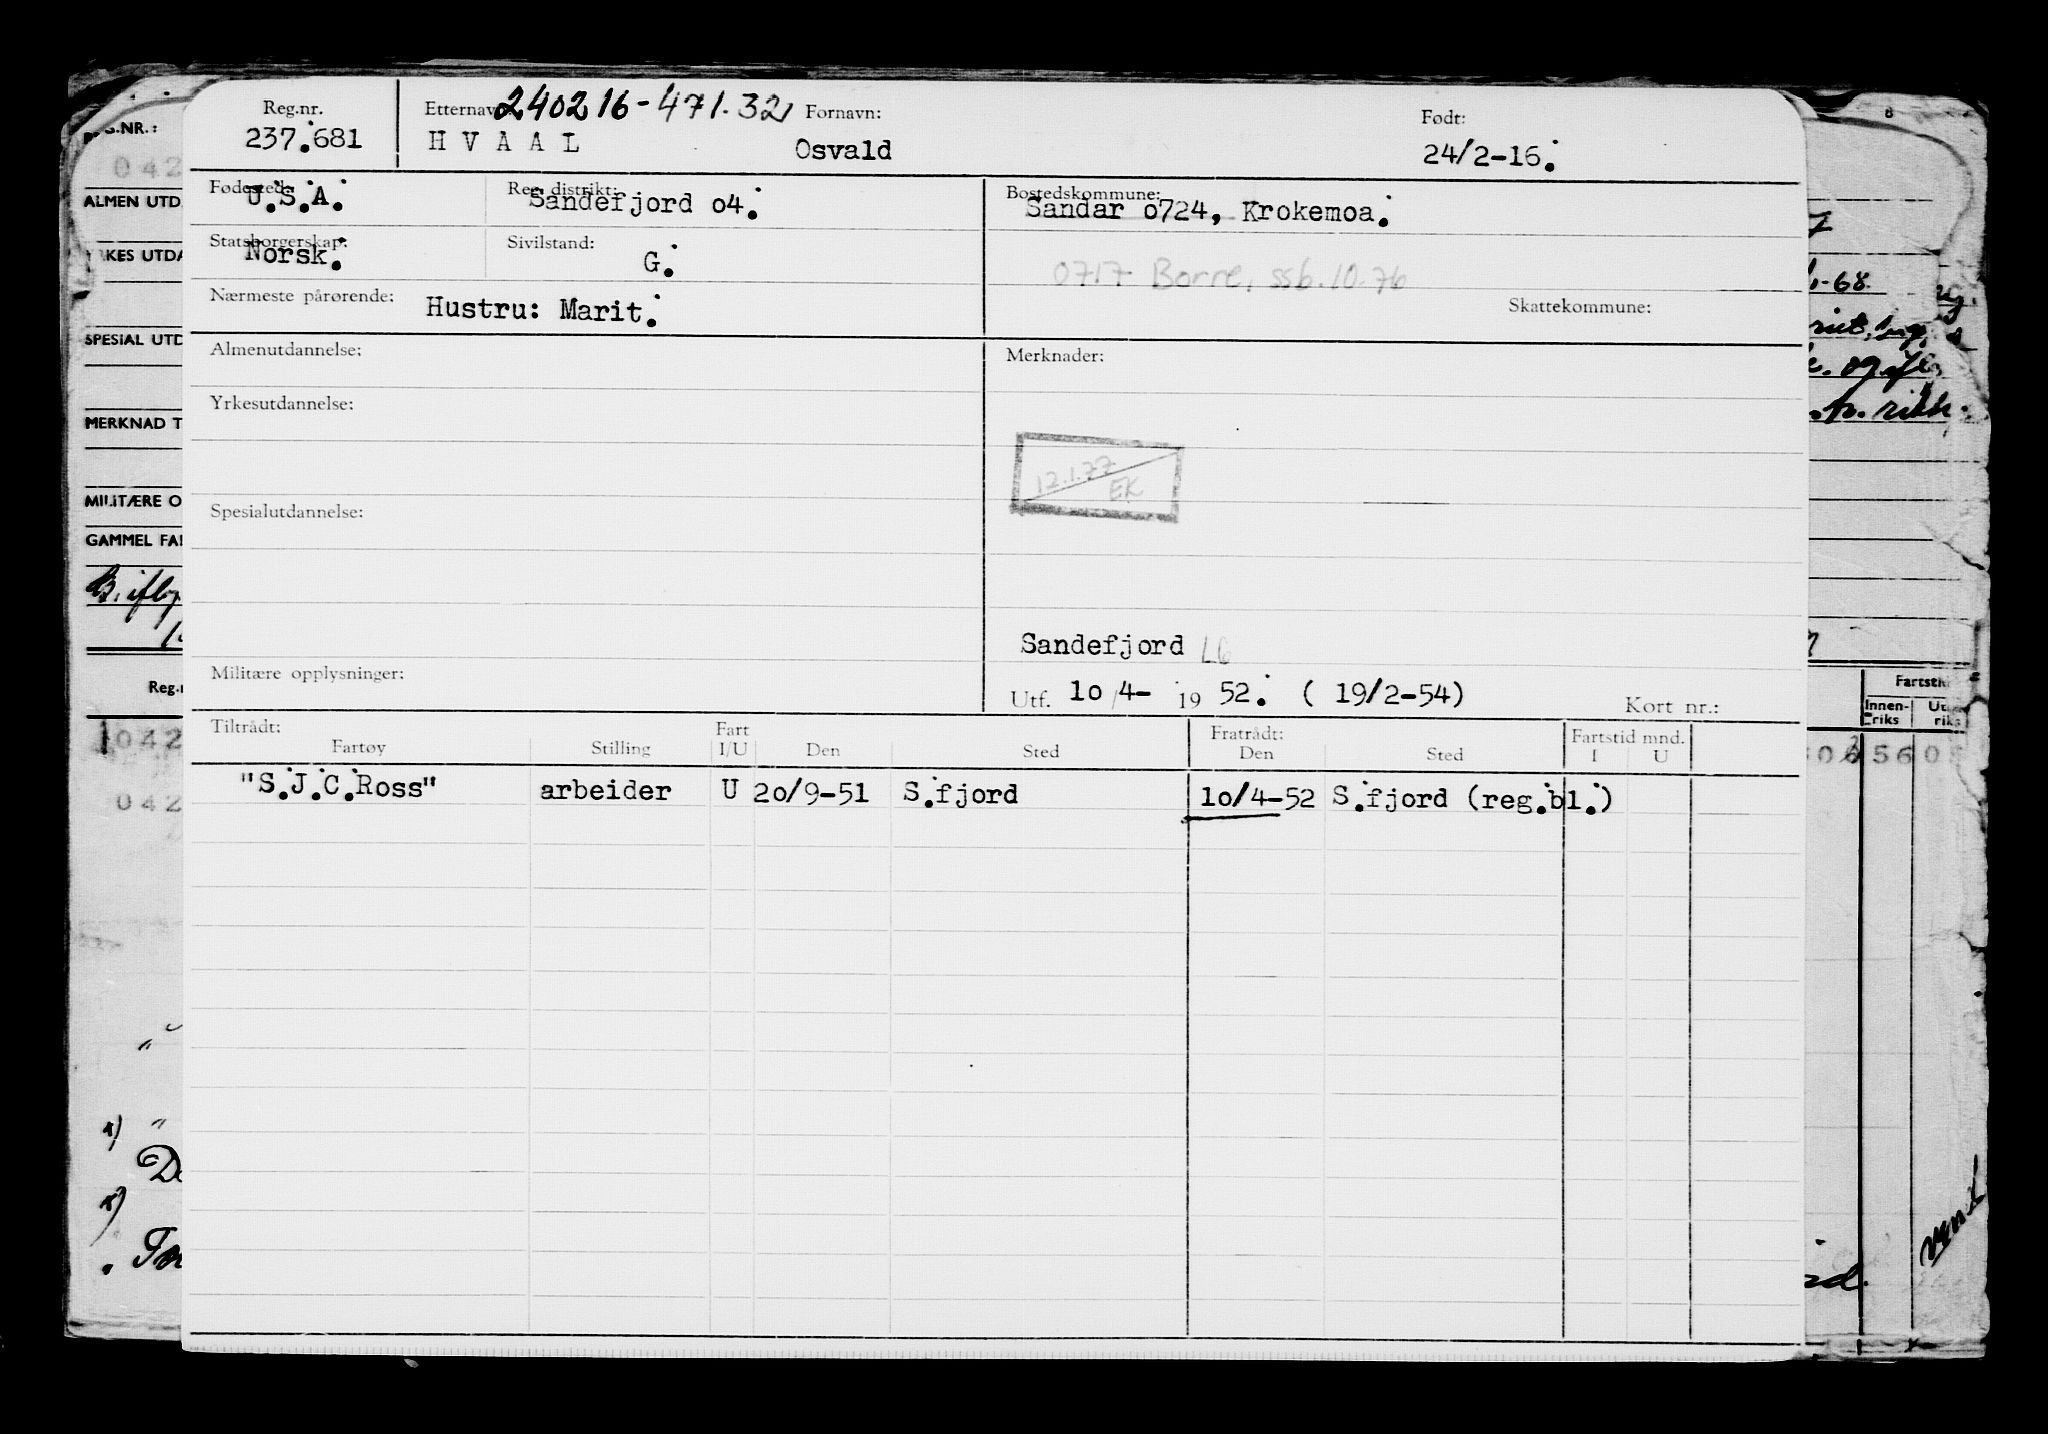 Reg.nr.
237.681
Etternavn:
240216-471.32
HVAAL
Fornavn:
Osvald
Født:
24/2-16.
Fødested:
U.S.A.
Reg. distrikt:
Sandefjord o4.
Bostedskommune:
Sandar o724, Krokemoa.
Statsborgerskap:
Norsk.
Sivilstand:
G.
0717 Borre, ssb.10.76
Nærmeste pårørende:
Hustru: Marit.
Skattekommune:
Almenutdannelse:
Merknader:
Yrkesutdannelse:
12.1.77
EK
Spesialutdannelse:
Sandefjord LG
Militære opplysninger:
Utf. 1o/4- 19 52. ( 19/2-54)
Kort nr.:
Tiltrådt:
Fartøy Stilling Fart I/U Den Sted
Fratrådt:
Den Sted
Fartstid mnd.
I U
"S.J.C.Ross" arbeider U 2o/9-51 S.fjord 1o/4-52 S.fjord (reg.bl.)
G.NR.:
042
ALMEN UTD
KES UTDA
SPESIAL UTD
MERKNAD T
MILITÆRE O
GAMMEL FA
B. ifly
Reg.
1042
042
x)
x)
8
-68
og
Fartsti
Innen-
riks
Ut
riks
5605